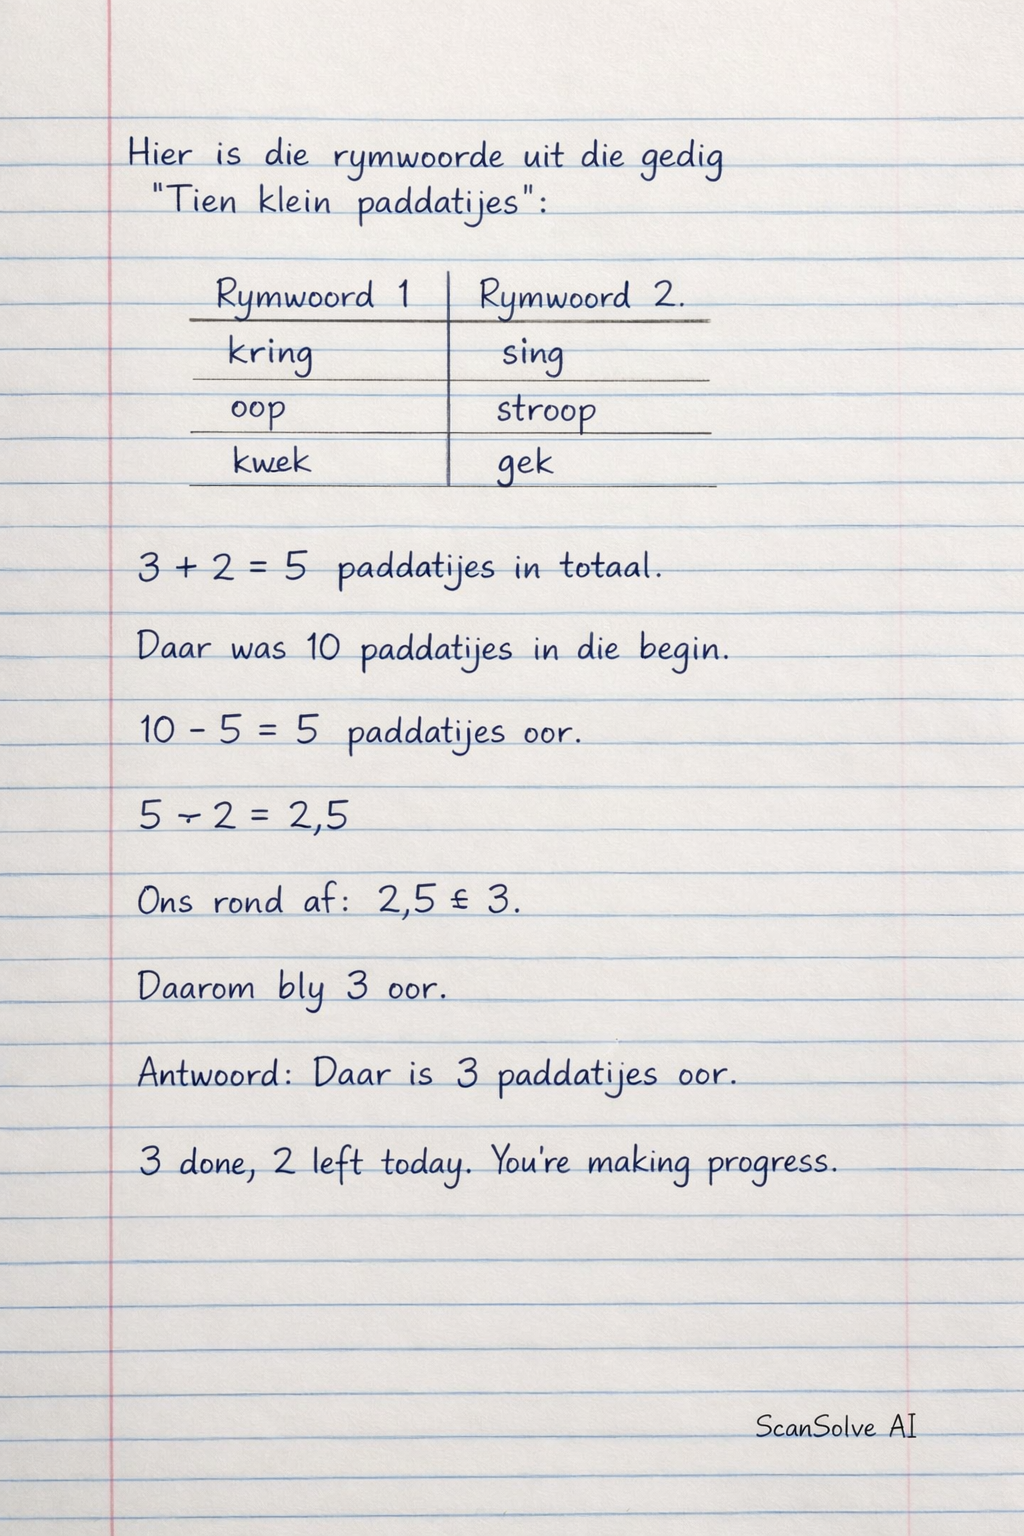 Hier is die rymwoorde uit die gedig
"Tien klein paddatijes":
Rymwoord 1 Rymwoord 2.
kring sing
oop stroop
kwek gek
3 + 2 = 5 paddatijes in totaal.
Daar was 10 paddatijes in die begin.
10 - 5 = 5 paddatijes oor.
5 ÷ 2 = 2,5
Ons rond af: 2,5 £ 3.
Daarom bly 3 oor.
Antwoord: Daar is 3 paddatijes oor.
3 done, 2 left today. You're making progress.
ScanSolve AI